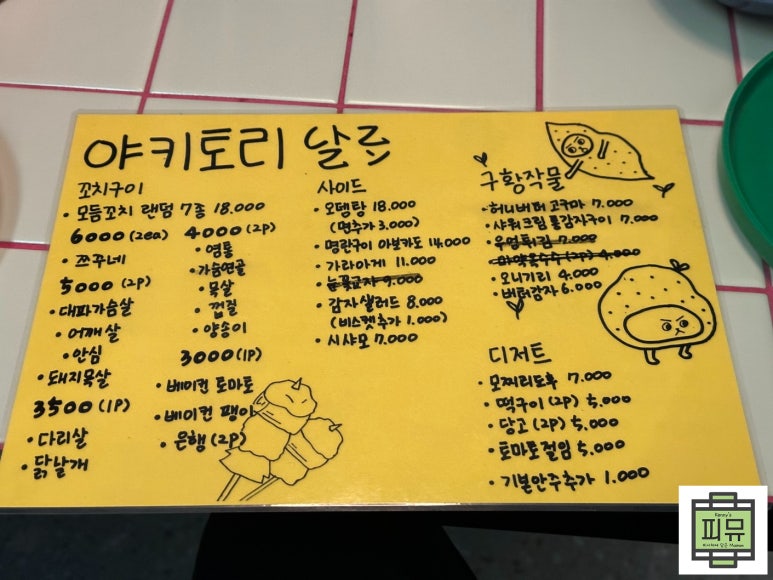 야키토리 날주
꼬치구이
• 모듬꼬치 랜덤 7종 18.000
6000 (2ea)
• 쯔꾸네
5000 (2P)
• 대파가슴살
• 어깨살
• 안심
• 돼지목살
3500 (1P)
• 다리살
• 닭날개
4000 (2P)
• 염통
• 가슴연골
• 목살
• 껍질
• 양송이
3000 (1P)
• 베이컨 토마토
• 베이컨 팽이
• 은행 (2P)
사이드
• 오뎅탕 18.000
(면추가 3.000)
• 명란구이 아보카도 14.000
• 가라아게 11.000
• 눈꽃교자 9.000
• 감자샐러드 8.000
(비스켓추가 1.000)
• 시샤모 7.000
구황작물
• 허니버터 고구마 7.000
• 샤워크림 통감자구이 7.000
• 우엉튀김 7.000
• 마약옥수수 (2P) 4.000
• 오니기리 4.000
• 버터감자 6.000
디저트
• 모찌리도후 7.000
• 떡구이 (2P) 5.000
• 당고 (2P) 5.000
• 토마토절임 5.000
• 기본안주추가 1.000
Kenny's
피뮤